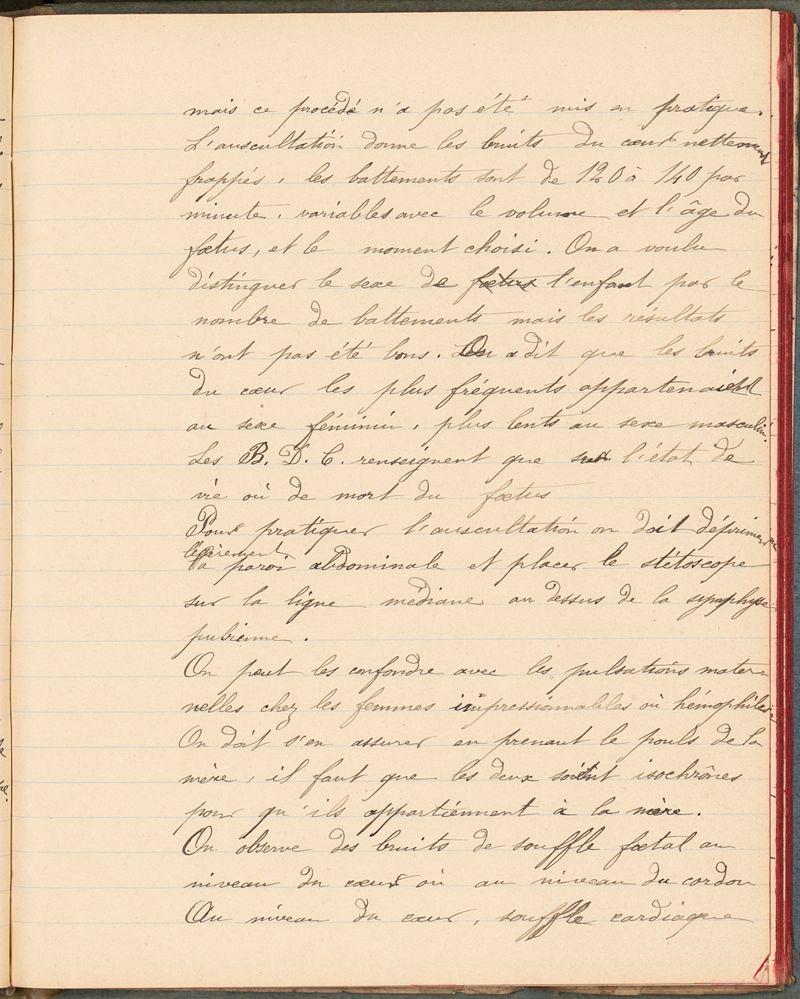 mais ce procédé n'a pas été mis en pratique.
L'auscultation donne les bruits du cœur nettement
frappés, les battements sont de 120 à 140 par
minute, variables avec le volume et l'âge du
fœtus, et le moment choisi. On a voulu
distinguer le sexe de fœtus l'enfant par le
nombre de battements mais les résultats
n'ont pas été bons. On a dit que les bruits
du cœur les plus fréquents appartenaient
au sexe féminin, plus lents au sexe masculin.
Les B. D. C. renseignent que sur l'état de
vie où de mort du fœtus
Pour pratiquer l'auscultation on doit déprimer
légèrement
la paroi abdominale et placer le stétoscope
sur la ligne médiane au dessus de la symphyse
pubienne.
On peut les confondre avec les pulsations mater-
nelles chez les femmes impressionnables où hémophiles
On doit s'en assurer en prenant le pouls de la
mère, il faut que les deux soient isochrônes
pour qu'ils appartiennent à la mère.
On observe des bruits de souffle fœtal au
niveau du cœur où au niveau du cordon
Au niveau du cœur, souffle cardiaque